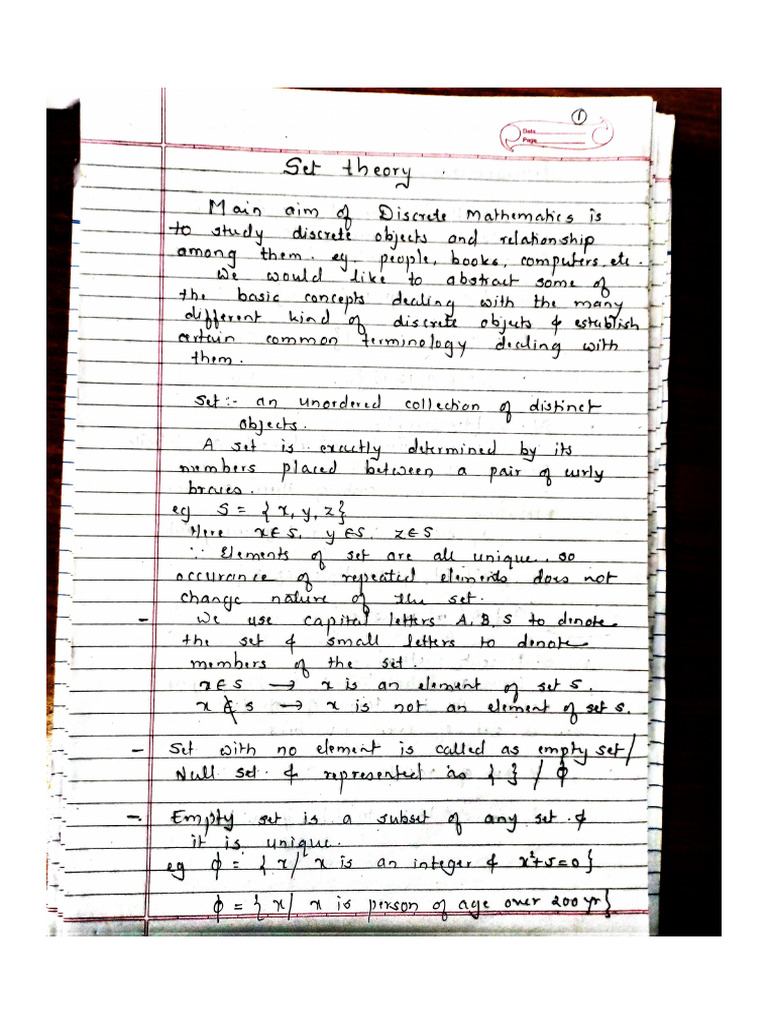 1
Date
Page
Set theory.
Main aim of Discrete Mathematics is
to study discrete objects and relationship
among them. eg. people, books, computers, etc.
We would like to abstract some of
the basic concepts dealing with the many
different kind of discrete objects & establish
certain common terminology dealing with
them.
Set:- an unordered collection of distinct
objects.
A set is exactly determined by its
members placed between a pair of curly
braces.
eg S = {x, y, z}
Here x∈S, y∈S, z∈S
∵ Elements of set are all unique, so
occurance of repeated elements does not
change nature of the set.
- We use capital letters A, B, S to denote
the set & small letters to denote
members of the set.
x∈S → x is an element of set S.
x∉S → x is not an element of set S.
- Set with no element is called as empty set/
Null set & represented as { } / ϕ
- Empty set is a subset of any set &
it is unique.
eg ϕ = {x/ x is an integer & x²+5=0}
ϕ = {x/ x is person of age over 200 yr}